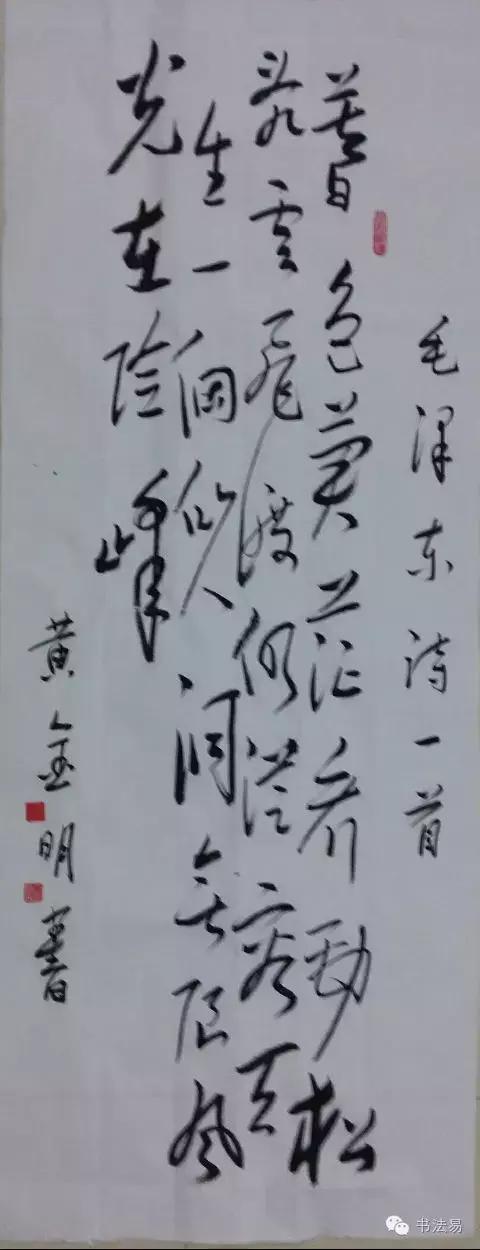 毛泽东诗一首
暮色苍茫看劲松
乱雲飛渡仍從容天
生一個仙人洞無限風
光在险峰
黄金明書
书法易